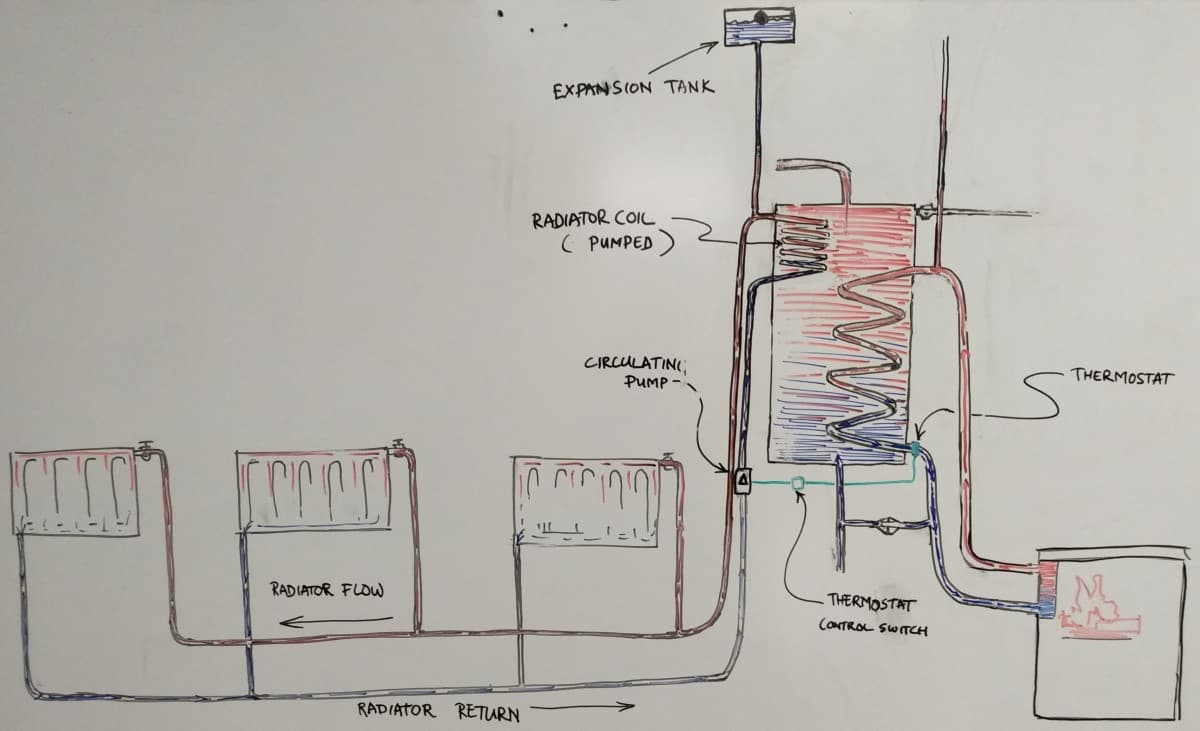 EXPANSION TANK
RADIATOR COIL
( PUMPED )
CIRCULATING
PUMP
THERMOSTAT
RADIATOR FLOW
THERMOSTAT
CONTROL SWITCH
RADIATOR RETURN